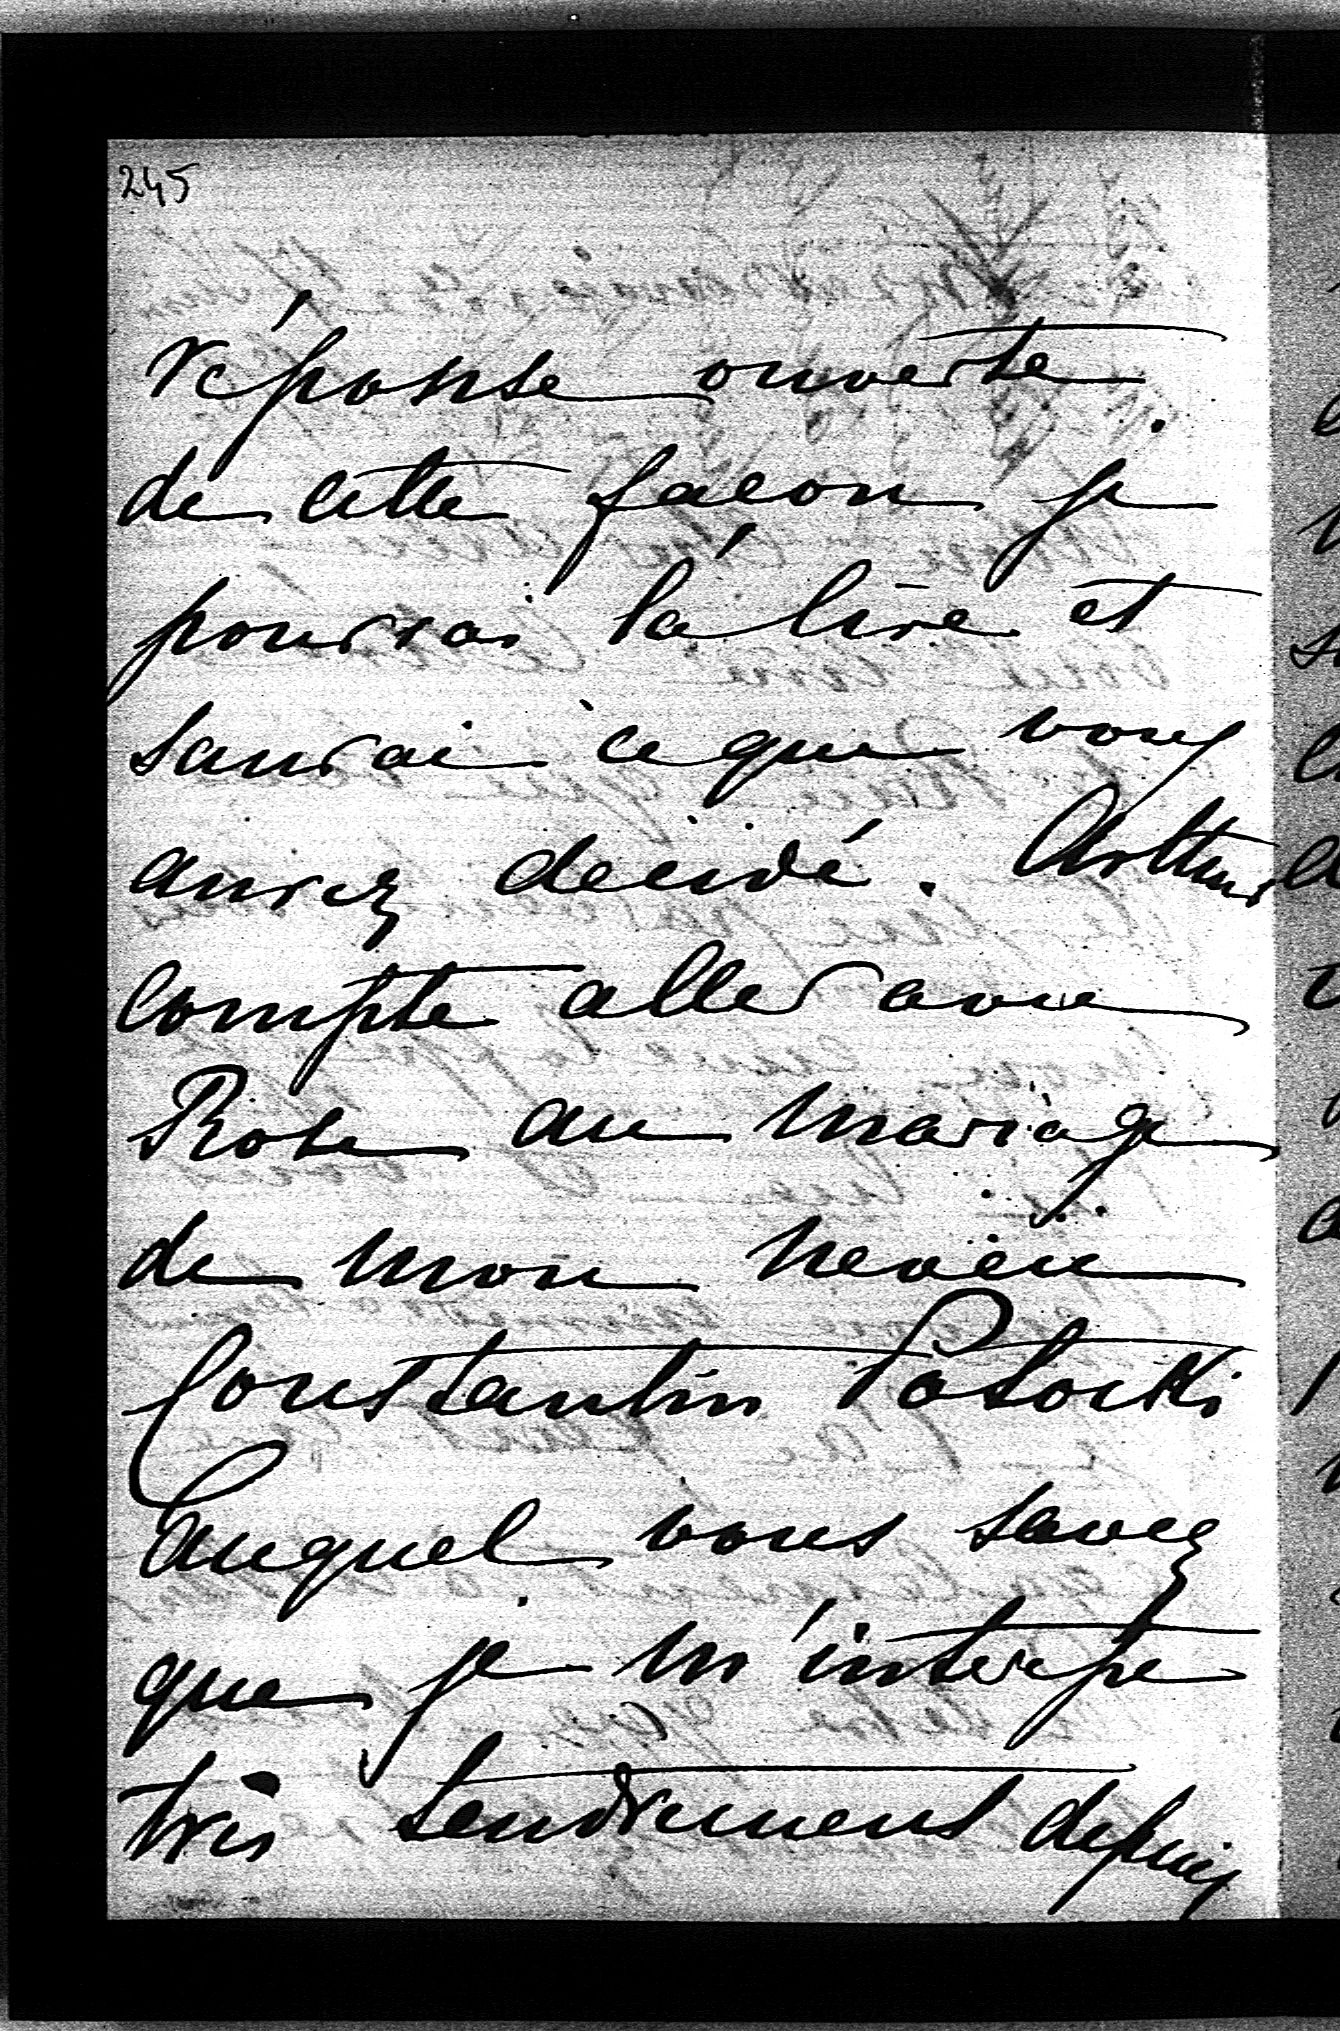 245
réponse ouverte.
de cette façon je
pourrai la lire et
saurai ce que vous
aurez decidé. Arthur
compte aller avec
Rose au mariage
de mon neveu
Constantin Potocki
auquel vous savez
que je m'interesse
très tendrement depuis